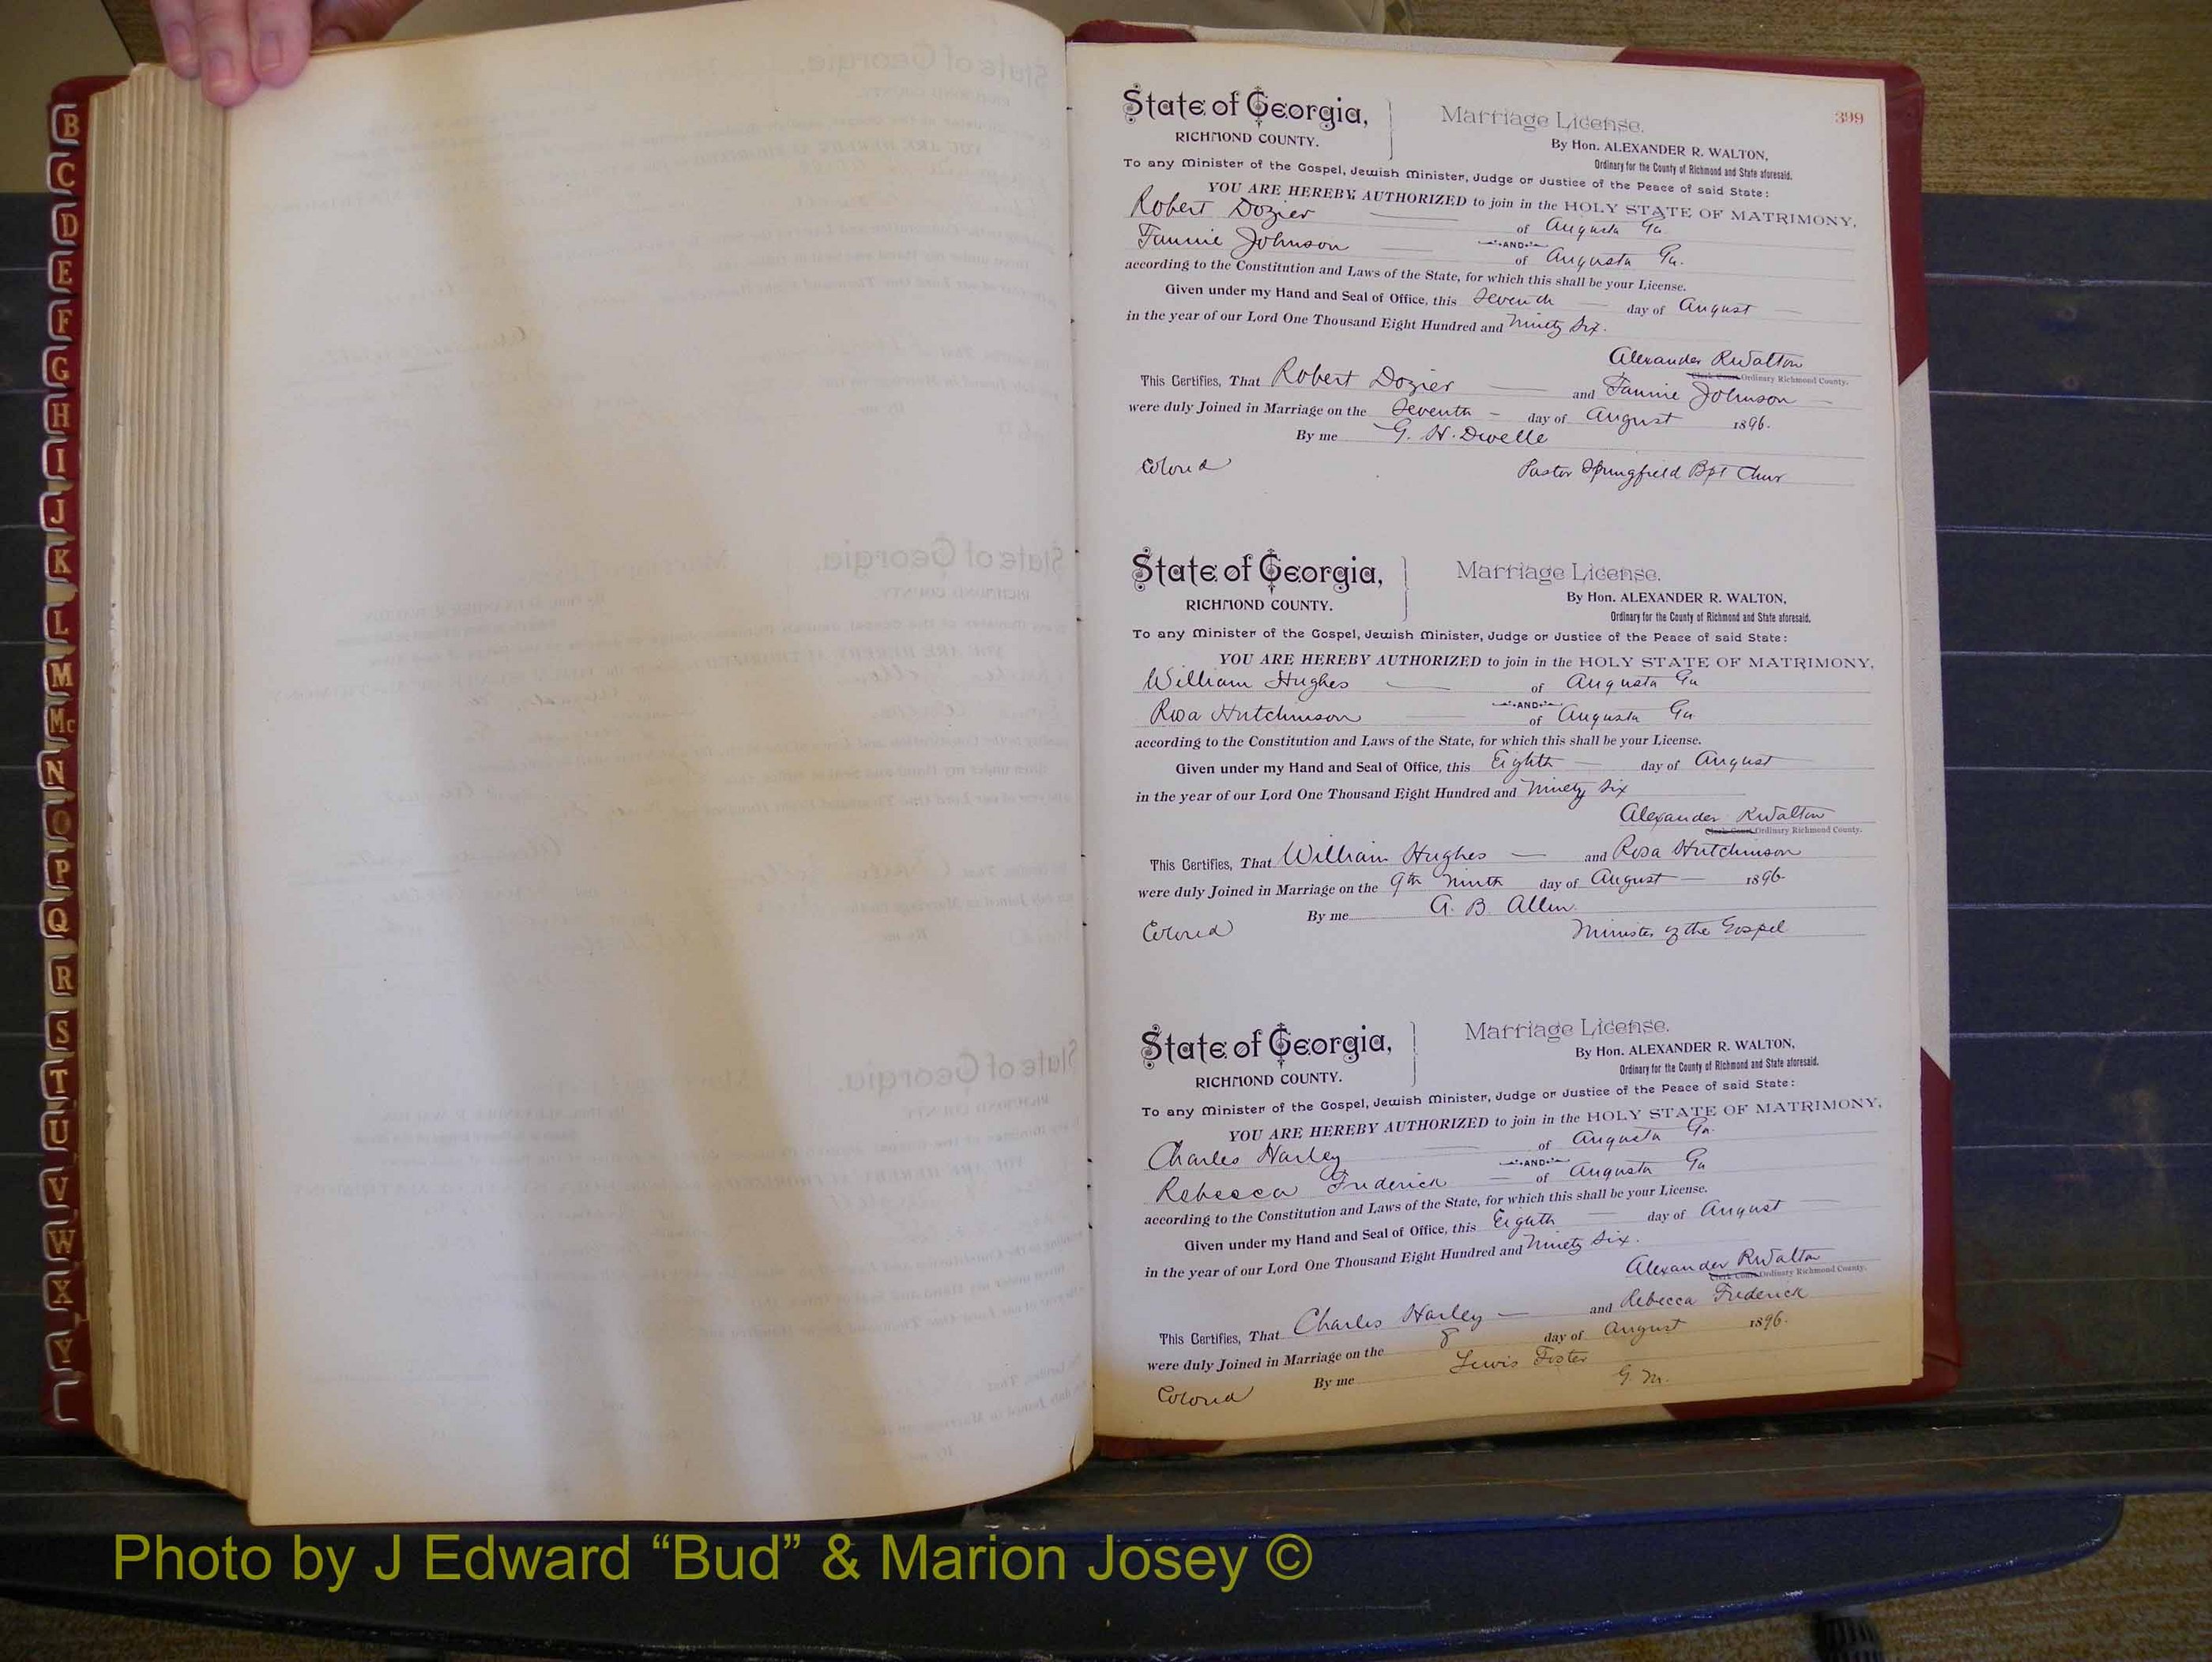 B
C
D
E
F
G
H
I
J
K
L
M
Mc
N
O
P
Q
R
S
T
U
V
W
X
Y
399
State of Georgia, Marriage License.
RICHMOND COUNTY. By Hon. ALEXANDER R. WALTON,
Ordinary for the County of Richmond and State aforesaid.
To any Minister of the Gospel, Jewish Minister, Judge or Justice of the Peace of said State:
YOU ARE HEREBY AUTHORIZED to join in the HOLY STATE OF MATRIMONY,
Robert Dozier of Augusta Ga.
AND
Fannie Johnson of Augusta Ga.
according to the Constitution and Laws of the State, for which this shall be your License.
Given under my Hand and Seal of Office, this Seventh day of August
in the year of our Lord One Thousand Eight Hundred and Ninety Six.
Alexander R Walton
Clerk Court Ordinary Richmond County.
This Certifies, That Robert Dozier and Fannie Johnson
were duly Joined in Marriage on the Seventh day of August 1896.
By me G. H. Dwelle
Colored Pastor Springfield Bpt Chur
State of Georgia, Marriage License.
RICHMOND COUNTY. By Hon. ALEXANDER R. WALTON,
Ordinary for the County of Richmond and State aforesaid.
To any Minister of the Gospel, Jewish Minister, Judge or Justice of the Peace of said State:
YOU ARE HEREBY AUTHORIZED to join in the HOLY STATE OF MATRIMONY,
William Hughes of Augusta Ga
AND
Rosa Hutchinson of Augusta Ga
according to the Constitution and Laws of the State, for which this shall be your License.
Given under my Hand and Seal of Office, this Eighth day of August
in the year of our Lord One Thousand Eight Hundred and Ninety Six
Alexander R Walton
Clerk Court Ordinary Richmond County.
This Certifies, That William Hughes and Rosa Hutchinson
were duly Joined in Marriage on the 9th Ninth day of August 1896
By me A. B. Allen.
Colored Minister of the Gospel
State of Georgia, Marriage License.
RICHMOND COUNTY. By Hon. ALEXANDER R. WALTON,
Ordinary for the County of Richmond and State aforesaid.
To any Minister of the Gospel, Jewish Minister, Judge or Justice of the Peace of said State:
YOU ARE HEREBY AUTHORIZED to join in the HOLY STATE OF MATRIMONY,
Charles Harley of Augusta Ga.
AND
Rebecca Frederick of Augusta Ga
according to the Constitution and Laws of the State, for which this shall be your License.
Given under my Hand and Seal of Office, this Eighth day of August
in the year of our Lord One Thousand Eight Hundred and Ninety Six.
Alexander R Walton
Clerk Court Ordinary Richmond County.
This Certifies, That Charles Harley and Rebecca Frederick
were duly Joined in Marriage on the 8 day of August 1896.
By me Lewis Foster
Colored G. M.
Photo by J Edward “Bud” & Marion Josey ©